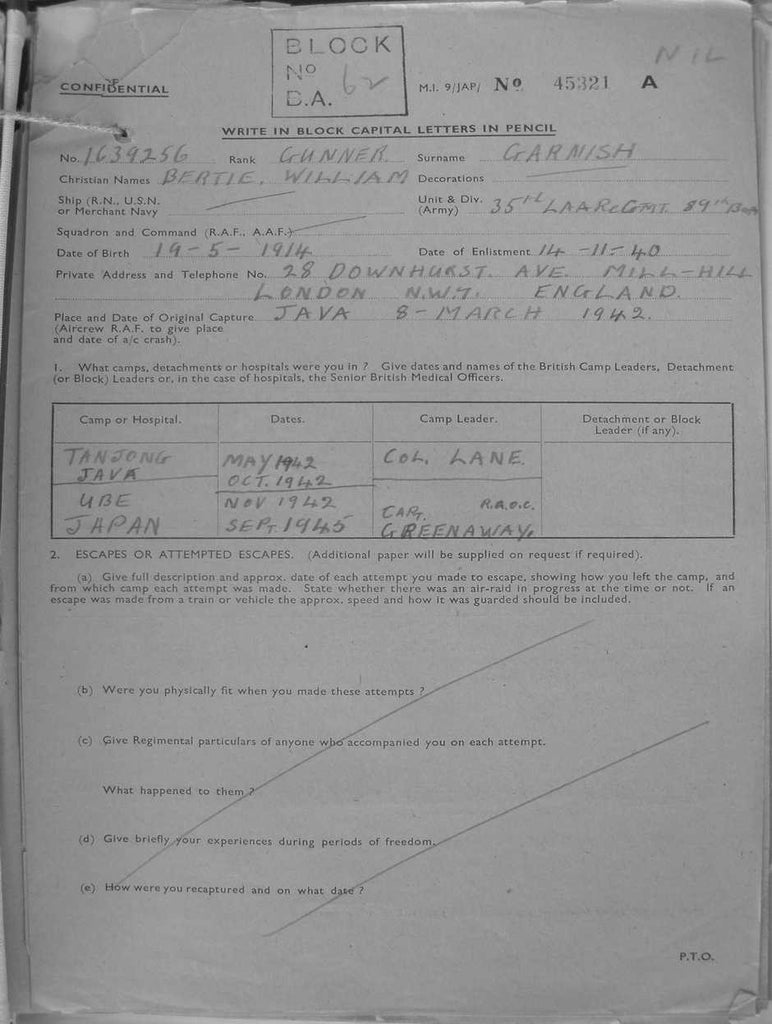 BLOCK
No
B.A. 62
NIL
CONFIDENTIAL
M.I. 9/JAP/ No 45321 A
WRITE IN BLOCK CAPITAL LETTERS IN PENCIL
No. 1639256 Rank GUNNER. Surname GARNISH
Christian Names BERTIE. WILLIAM Decorations
Ship (R.N., U.S.N. or Merchant Navy
Unit & Div. (Army) 35TH LAA REGMT. 89TH
Squadron and Command (R.A.F., A.A.F.)
Date of Birth 19-5-1914 Date of Enlistment 14-11-40
Private Address and Telephone No. 28 DOWNHURST. AVE. MILL-HILL
LONDON N.W.7. ENGLAND.
Place and Date of Original Capture JAVA 8-MARCH 1942.
(Aircrew R.A.F. to give place
and date of a/c crash).
1. What camps, detachments or hospitals were you in ? Give dates and names of the British Camp Leaders, Detachment
(or Block) Leaders or, in the case of hospitals, the Senior British Medical Officers.
Camp or Hospital. Dates. Camp Leader. Detachment or Block Leader (if any).
TANJONG MAY 1942 COL. LANE.
JAVA OCT. 1942
UBE NOV 1942 CAPT. R.A.O.C.
JAPAN SEPT 1945 GREENAWAY.
2. ESCAPES OR ATTEMPTED ESCAPES. (Additional paper will be supplied on request if required).
(a) Give full description and approx. date of each attempt you made to escape, showing how you left the camp, and
from which camp each attempt was made. State whether there was an air-raid in progress at the time or not. If an
escape was made from a train or vehicle the approx. speed and how it was guarded should be included.
(b) Were you physically fit when you made these attempts ?
(c) Give Regimental particulars of anyone who accompanied you on each attempt.
What happened to them ?
(d) Give briefly your experiences during periods of freedom.
(e) How were you recaptured and on what date ?
P.T.O.